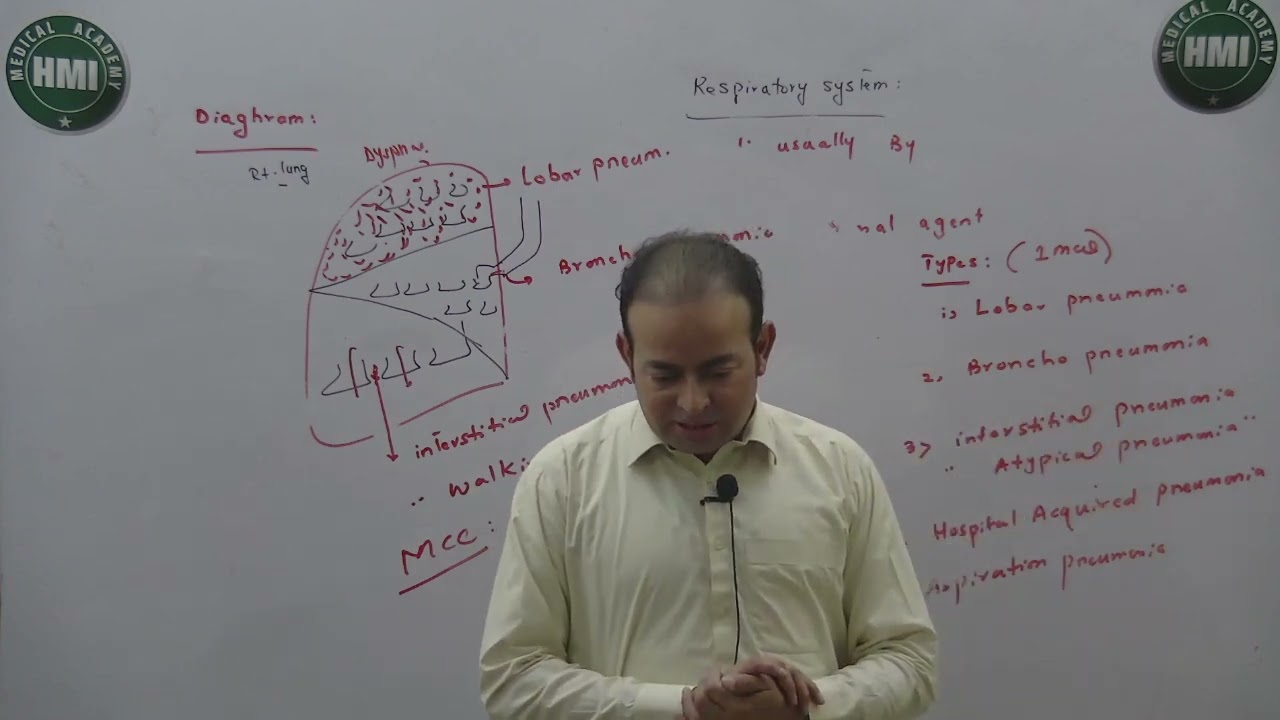 MEDICAL ACADEMY
HMI
MEDICAL ACADEMY
HMI
Respiratory system:
Diaghram:
Rt. lung
Lobar pneum.
Broncho
interstitial pneumon
.. walki
MCC:
1. usually By
nal agent
Types: (1 mcq)
1, Lobar pneummia
2, Broncho pneummia
3, interstitial pneumonia
" Atypical pneummia "
Hospital Acquired pneumonia
Aspiration pneumonia